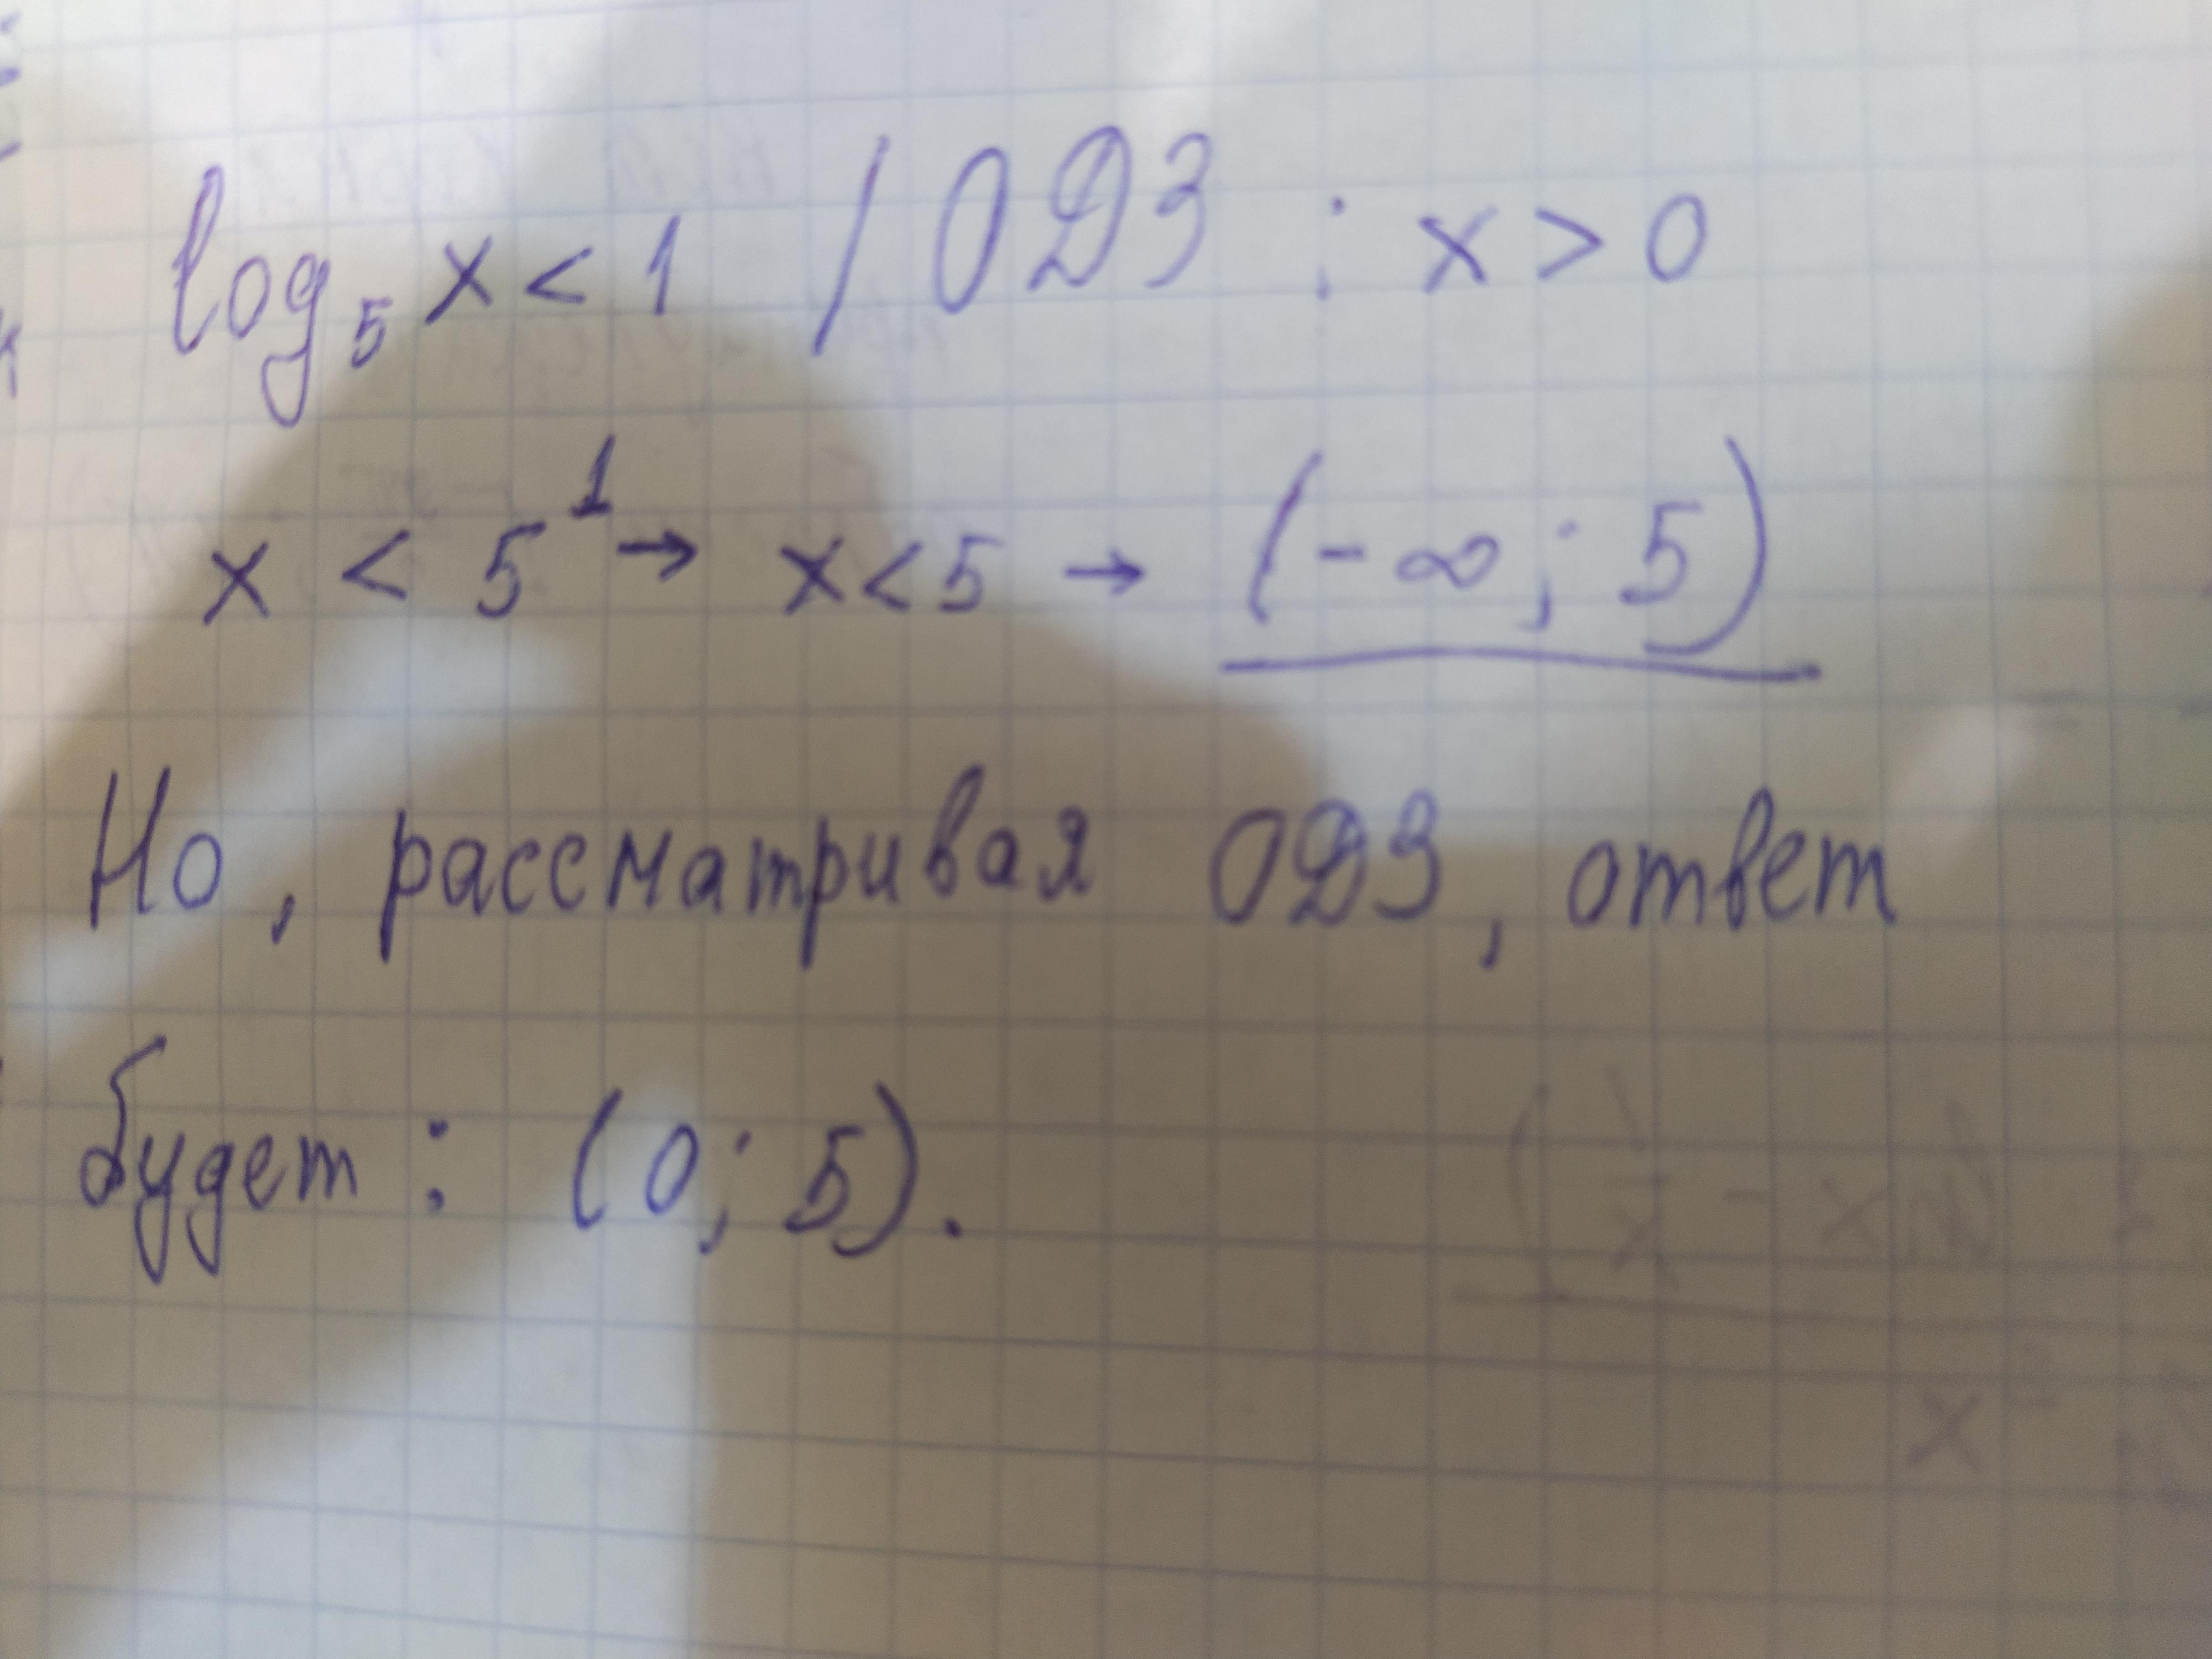 log₅x < 1 / ОДЗ : x > 0
x < 5¹ → x < 5 → (-∞; 5)
Но, рассматривая ОДЗ, ответ
будет : (0; 5).